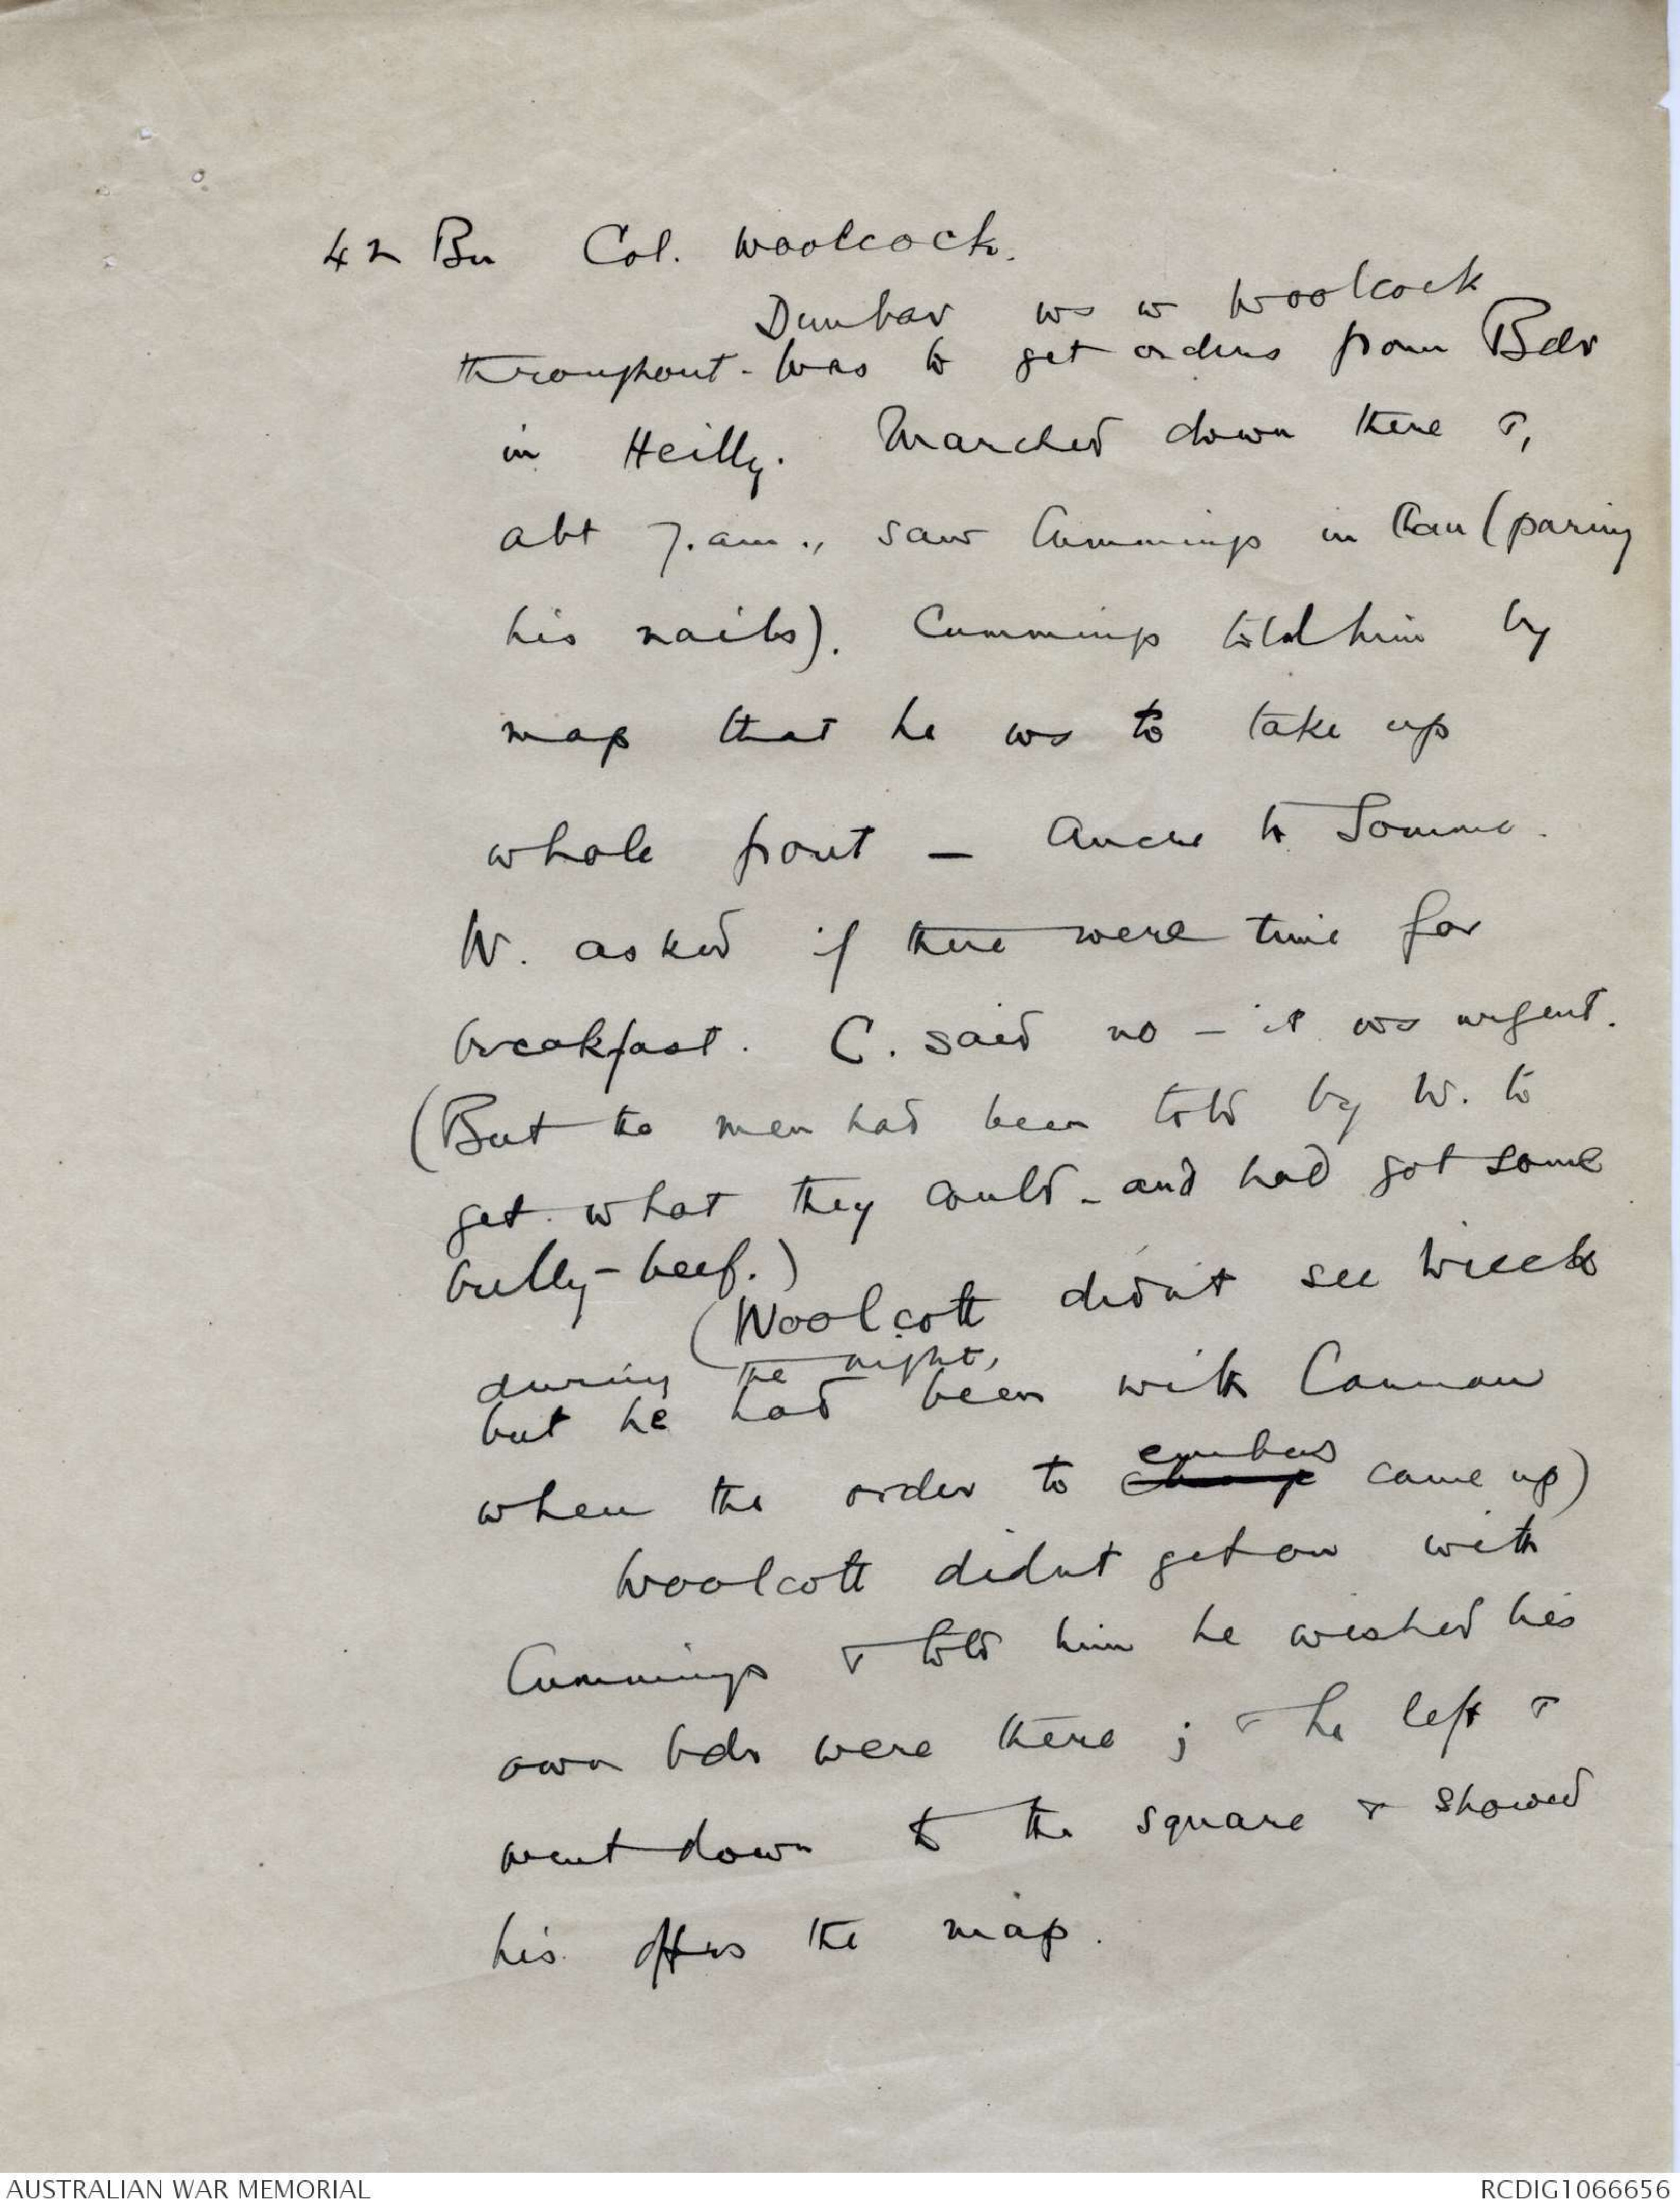 42 Bn Col. Woolcock.
Dunbar ws w Woolcock
throughout - was to get orders from Bdr
in Heilly. Marched down there &,
abt 7.am., saw Cummings in (paring
his nails). Cummings told him by
map that he ws to take up
whole front — Ancre to Somme.
W. asked if there were time for
breakfast. C. said no – it ws urgent.
(But the men had been told by W. to
get what they could - and had got some
bully-beef.)
(Woolcott didn't see Wieck
during the night,
but he had been with Cannan
when the order to embus came up)
Woolcott didnt get on with
Cummings & told him he wished his
own bdr were there ; & he left &
went down to the square & showed
his offrs the map.
AUSTRALIAN WAR MEMORIAL
RCDIG1066656